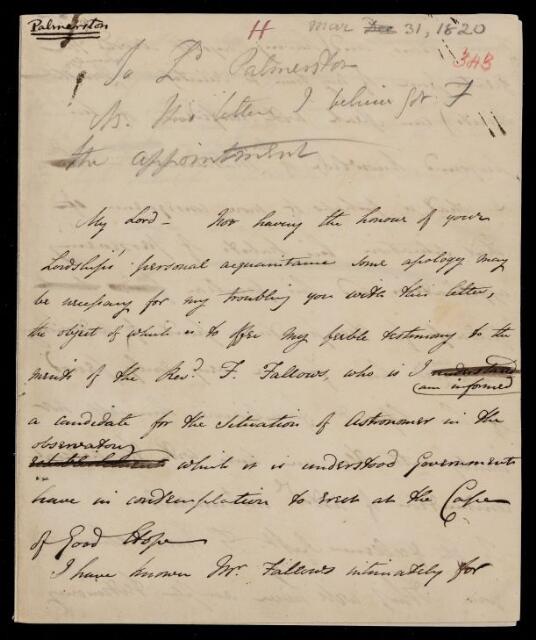 Palmerston
H
Mar Dec 31, 1820
3AB
To Ld Palmerston
NB. This letter I believe got F
the appointment
My Lord – Not having the honour of your
Lordships' personal acquaintance some apology may
be necessary for my troubling you with this letter,
the object of which is to offer my feeble testimony to the
merits of the Revd. F. Fallows, who is I understand
am informed
a candidate for the Situation of Astronomer in the
observatory
establishment which it is understood Government
have in contemplation to erect at the Cape
of Good Hope
I have known Mr. Fallows intimately for